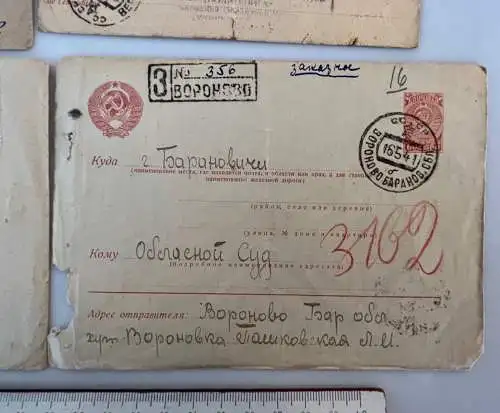 № 356
З ВОРОНОВО
заказное
16
СССР
ВОРОНОВО БАРАНОВ. ОБЛ.
16 5 41
б
Куда г. Барановичи
(наименование места, где находится почта, и области или края, а для станции
наименование железной дороги)
(район, село или деревня)
(улица, № дома и квартиры)
3162
Кому Обласной Суд
(Подробное наименование адресата)
Адрес отправителя: Вороново Бар обл.
хут Вороновка Пашковская Л.И.